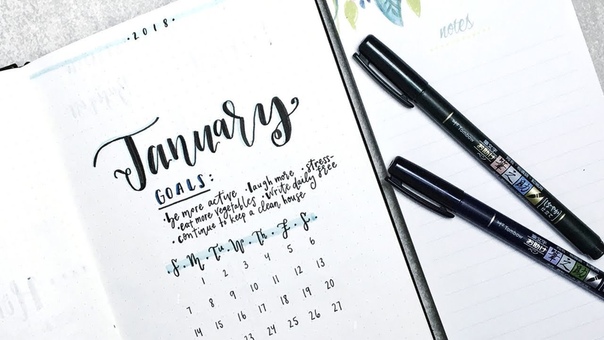 · 2018 ·
January
GOALS:
· be more active · laugh more · stress-
· eat more vegetables · write daily free
· continue to keep a clean house
S · M · Tu · W · Th · F · S ·
1 2 3 4 5 6
7 8 9 10 11 12 13
14 15 16 17 18 19 20
23 24 25 26 27
notes
Tombow
Tombow